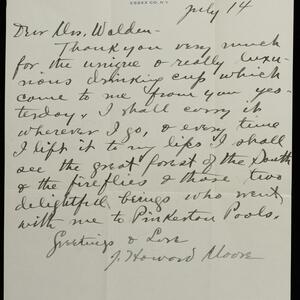 ESSEX CO., N.Y.
July 14
Dear Mrs. Walden—
Thank you very much
for the unique & really luxu-
rious drinking cup which
came to me from you yes-
terday. I shall carry it
wherever I go, & every time
I lift it to my lips I shall
see the great forest of the South
& the fireflies & those two
delightful beings who went
with me to Pinkerton Pools.
Greetings & Love
J. Howard Moore